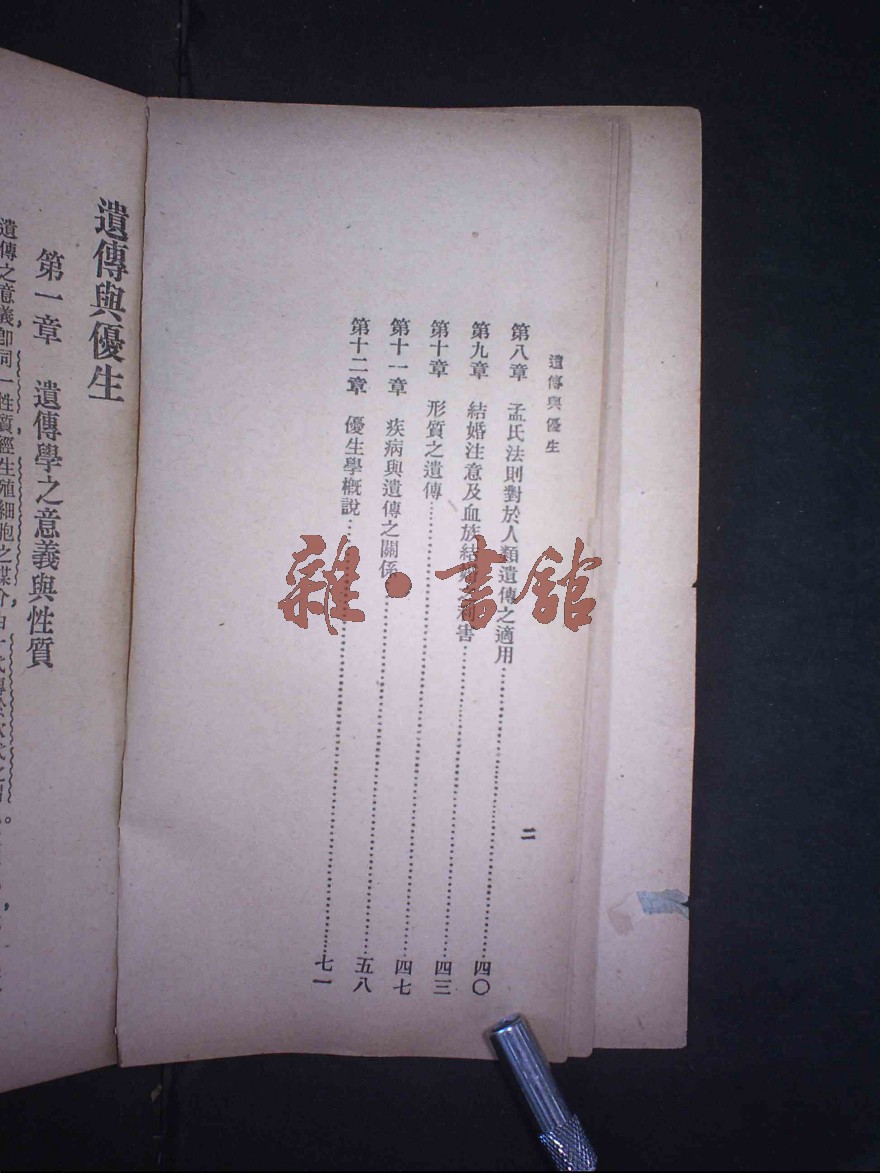 遺傳與優生
二
第八章 孟氏法則對於人類遺傳之適用……四〇
第九章 結婚注意及血族結婚之利害……四三
第十章 形質之遺傳……四七
第十一章 疾病與遺傳之關係……五八
第十二章 優生學概說……七一
雜·書館
遺傳與優生
第一章 遺傳學之意義與性質
遺傳之意義卽同一性質經生殖細胞之媒介由